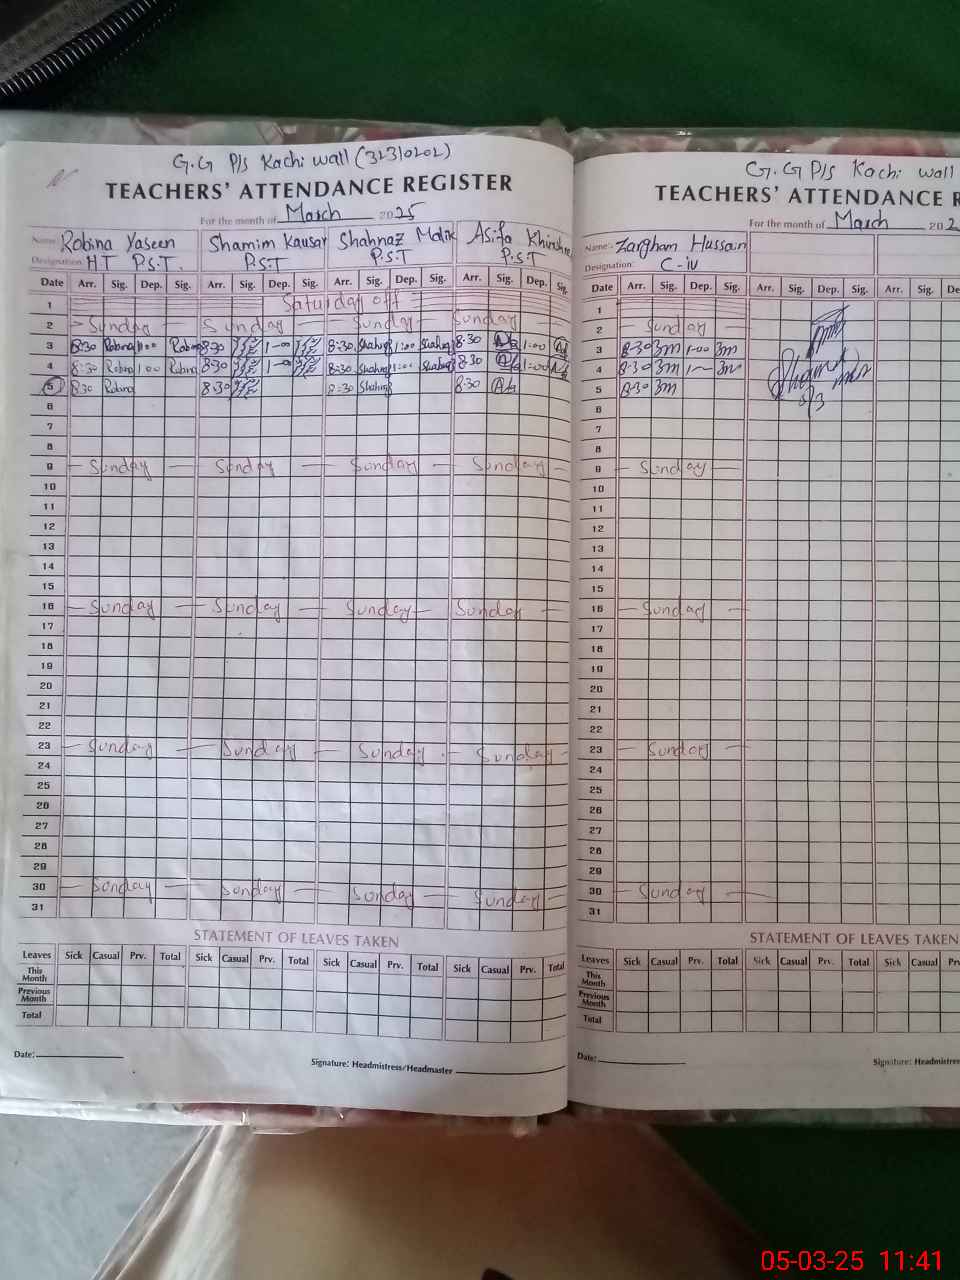 G.G P/S Kachi wall (32310202)
TEACHERS' ATTENDANCE REGISTER
For the month of March 2025
Name: Robina Yaseen Shamim Kausar Shahnaz Malik Asifa
Designation: HT P.S.T. P.S.T P.S.T P.S.T
Date Arr. Sig. Dep. Sig. Arr. Sig. Dep. Sig. Arr. Sig. Dep. Sig. Arr. Sig. Dep. Sig.
1 Saturday off
2 Sunday Sunday Sunday Sunday
3 8:30 Robina 1:00 Robina 8:30 1-00 8:30 Shahnaz 1:00 Shahnaz 8:30 1:00
4 8:30 Robina 1:00 Robina 8:30 1-00 8:30 Shahnaz 1:00 Shahnaz 8:30 1:00
5 8:30 Robina 8:30 8:30 Shahnaz 8:30
6
7
8
9 Sunday Sunday Sunday Sunday
10
11
12
13
14
15
16 Sunday Sunday Sunday Sunday
17
18
19
20
21
22
23 Sunday Sunday Sunday Sunday
24
25
26
27
28
29
30 Sunday Sunday Sunday Sunday
31
STATEMENT OF LEAVES TAKEN
Leaves Sick Casual Prv. Total Sick Casual Prv. Total Sick Casual Prv. Total Sick Casual Prv. Total
This Month
Previous Month
Total
Date:
Signature: Headmistress/Headmaster
G.G P/S Kachi wall
TEACHERS' ATTENDANCE R
For the month of March 202
Name:- Zargham Hussain
Designation: C-iv
Date Arr. Sig. Dep. Sig. Arr. Sig. Dep. Sig. Arr. Sig. De
1
2 Sunday
3 8-30 3m 1-00 3m
4 8-30 3m 1- 3m
5 8-30 3m
5/3
6
7
8
9 Sunday
10
11
12
13
14
15
16 Sunday
17
18
19
20
21
22
23 Sunday
24
25
26
27
28
29
30 Sunday
31
STATEMENT OF LEAVES TAKEN
Leaves Sick Casual Prv. Total Sick Casual Prv. Total Sick Casual Prv
This Month
Previous Month
Total
Date:
Signature: Headmistre
05-03-25 11:41